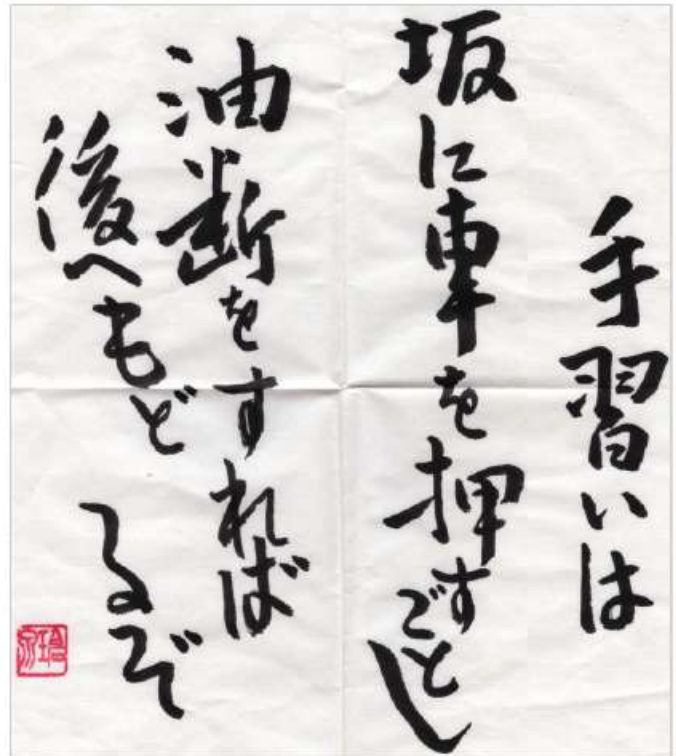 手習いは
坂に車を押すごとし
油断をすれば
後へもどるぞ